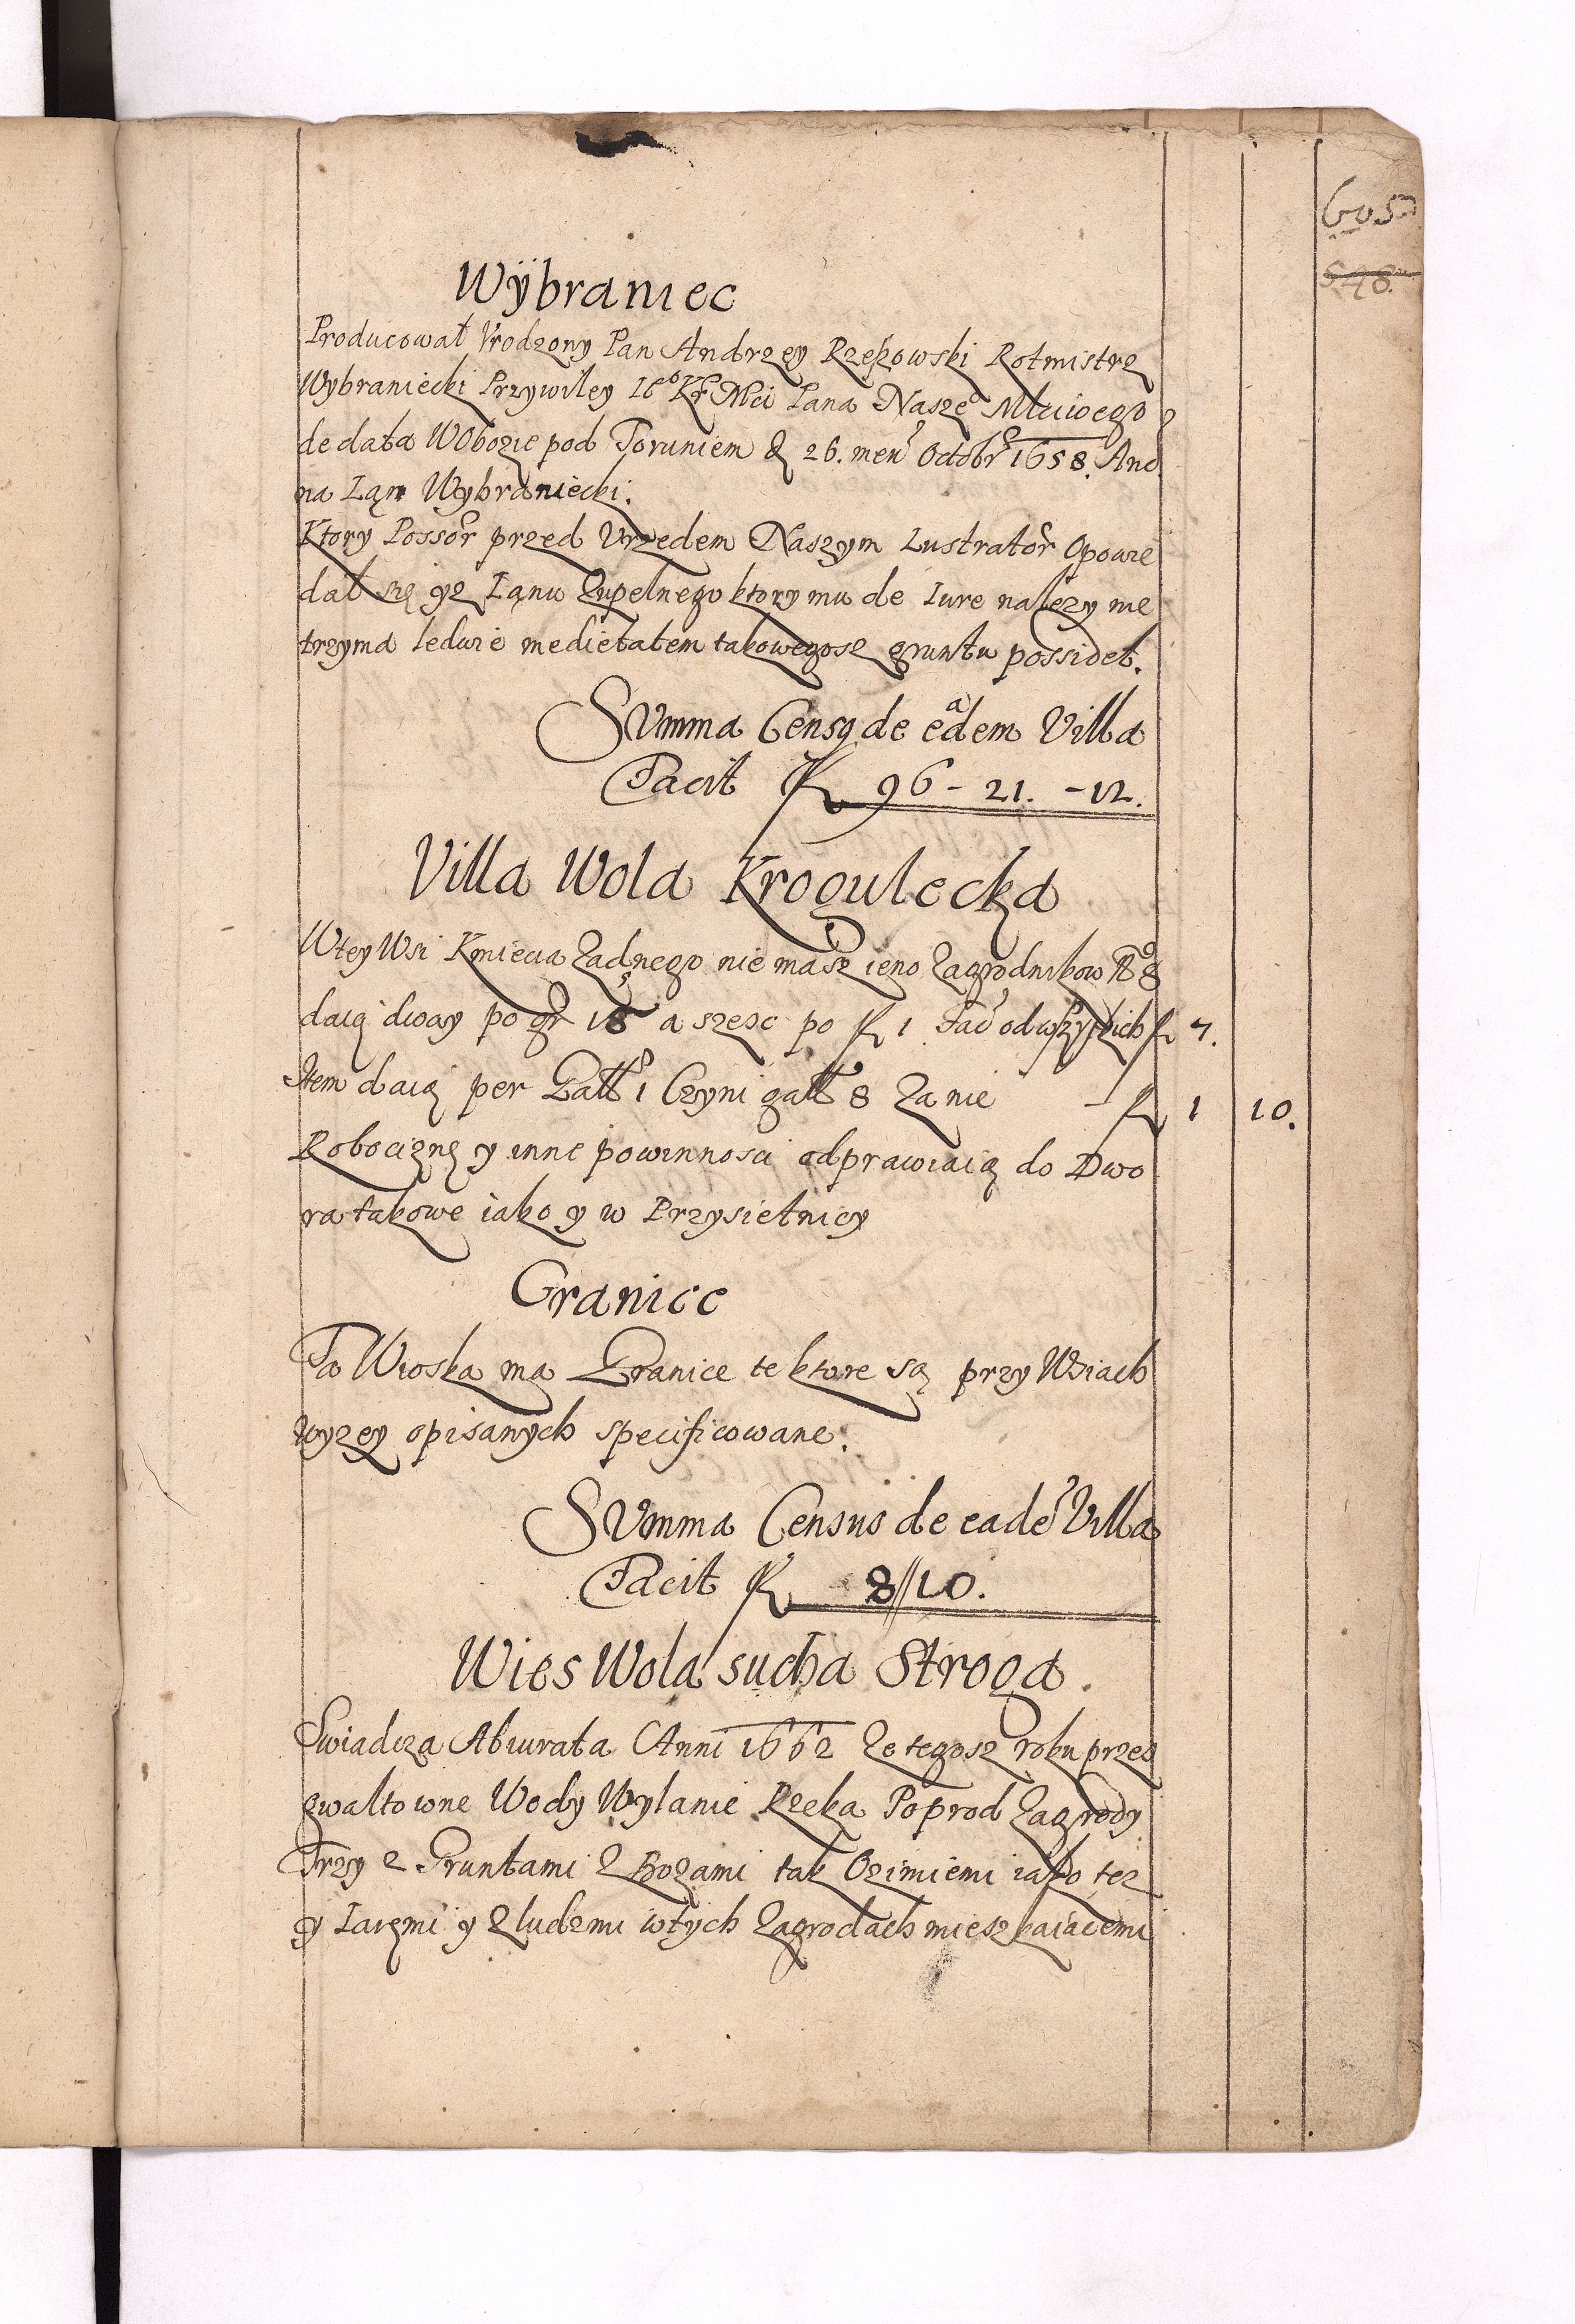 605
548.
Wÿbraniec
Producował Vrodzony Pan Andrzey Rzepkowski Rotmistrz
Wybraniecki Przywiley Ie° Kr Mci Pana Nasze° Mlciwego
de data WObozie pod Toruniem d 26. men Octobr 1658. Ano
na Łąn Wybraniecki.
Ktory Possor przed Vrzedem Naszym Lustrator Opowie
dał się yz Łąnu Zupełnego ktory mu de Iure nalezy nie
trzyma ledwie medietatem takowegosz gruntu possidet.
SVmma Censq de eadem Villa
Facit fl 96 - 21. - 12.
Villa Wola Krogulecka
Wtey Wsi Kmiecia Zadnego nie masz ieno Zagrodnikow No 8
daią dway po gr 15 a szesc po fl 1 Fac od wszytkich fl 7.
Item daią per Gall 1 Czyni gall 8 Za nie - fl 1 10.
Robociznę y inne powinnosci odprawiaią do Dwo
ra takowe iako y w Przysietnicy
Granice
Ta Wioska ma Granice te ktore są przy Wsiach
wyzey opisanych specificowane.
SVmma Census de eade Villa
Facit fl 8//10.
Wies Wola sucha Stroga.
Swiadcza Abiurata Anni 1662 Ze tegosz roku przez
gwałtowne Wody Wylanie Rzeka Poprod Zagrody
Trzy z Gruntami Zbozami tak Ozimiemi iako tez
y Iaręmi y Zludzmi wtych Zagrodach mieszkaiacemi